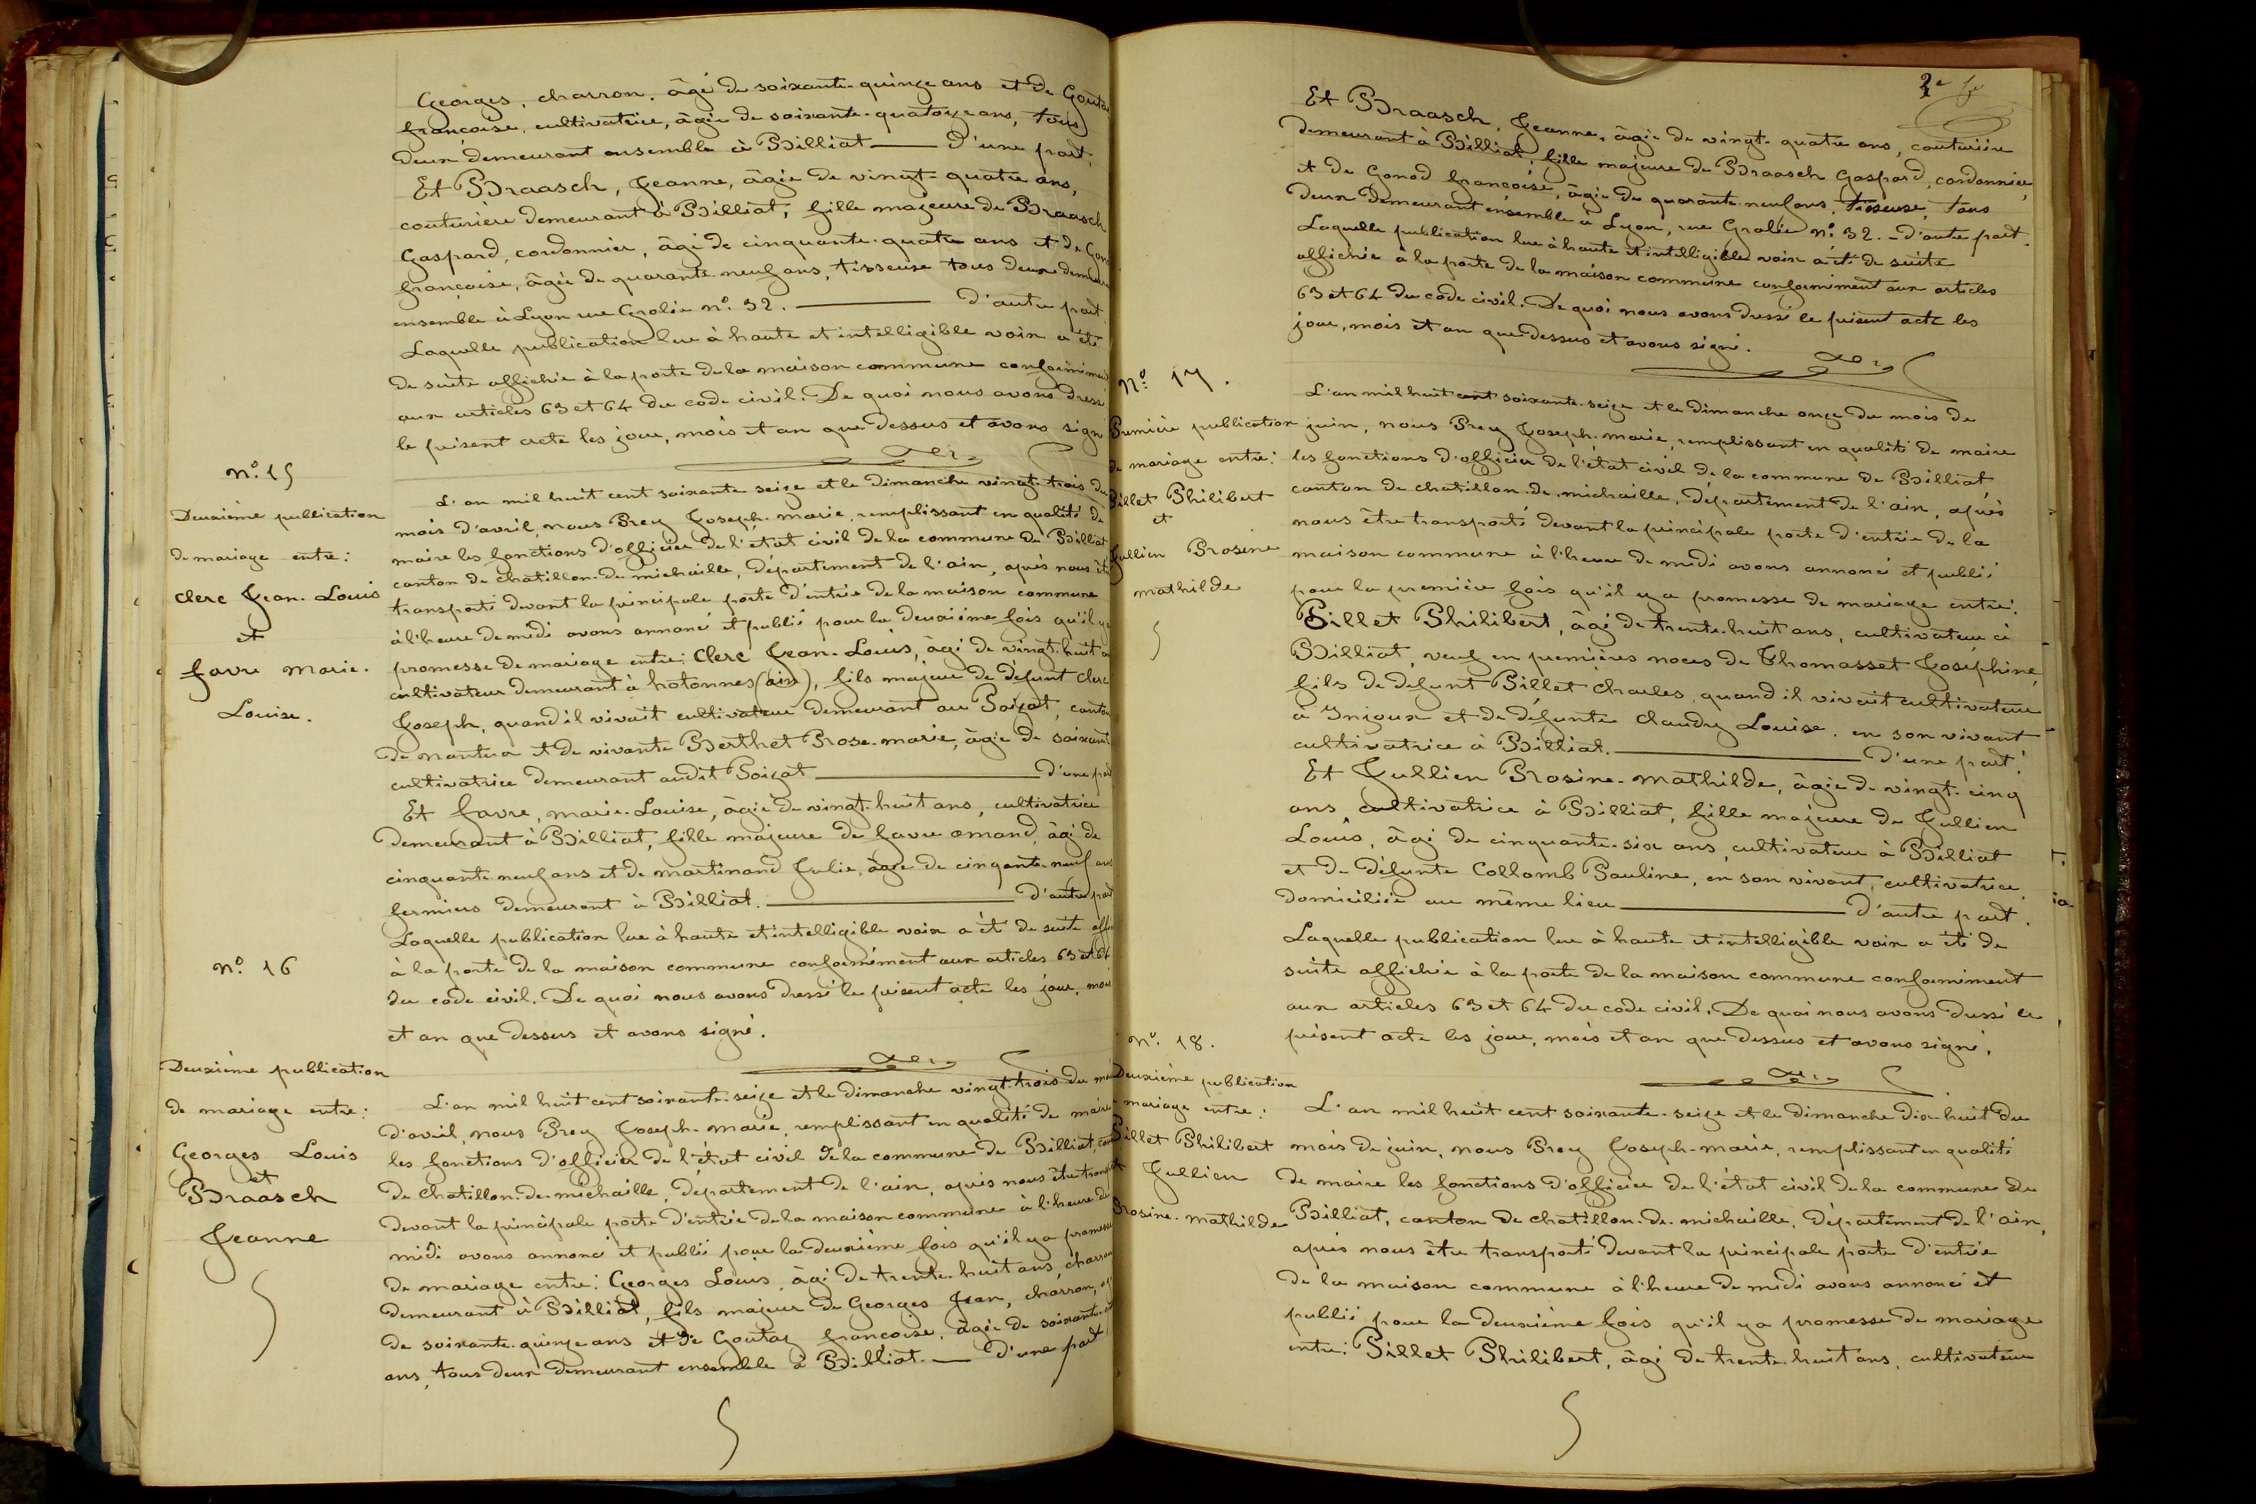 Georges, charron, âgé de soixante-quinze ans et de Goutay
françoise, cultivatrice, âgée de soixante-quatorze ans, tous
deux demeurant ensemble à Billiat — d'une part.
Et Braasch, Jeanne, âgée de vingt-quatre ans,
couturière demeurant à Billiat, fille majeure de Braasch
Gaspard, cordonnier, âgé de cinquante-quatre ans et de Gon
françoise, âgée de quarante-neuf ans, tisseuse tous deux demeur
ensemble à Lyon rue Grolée nº 32. — d'autre part.
Laquelle publication lue à haute et intelligible voix a été
de suite affichée à la porte de la maison commune conformément
aux articles 63 et 64 du code civil. De quoi nous avons dressé
le présent acte les jour, mois et an que dessus et avons signé
nº 15
Deuxième publication
de mariage entre:
Clerc Jean-Louis
et
favre marie-
Louise.
L'an mil huit cent soixante seize et le dimanche vingt-trois du
mois d'avril, nous Prey Joseph-marie, remplissant en qualité de
maire les fonctions d'officier de l'état civil de la commune de Billiat
canton de chatillon-de-michaille, département de l'ain, après nous être
transporté devant la principale porte d'entrée de la maison commune
à l'heure de midi avons annoncé et publié pour la deuxième fois qu'il y a
promesse de mariage entre: Clerc Jean-Louis, âgé de vingt-huit an
cultivateur demeurant à hotonnes (ain), fils majeur de défunt Clerc
Joseph, quand il vivait cultivateur demeurant au Poizat, canton
de nantua et de vivante Berthet Rose-marie, âgée de soixant
cultivatrice demeurant audit Poizat — d'une part
Et favre, marie-Louise, âgée de vingt-huit ans, cultivatrice
demeurant à Billiat, fille majeure de favre amand, âgé de
cinquante-neuf ans et de martinand Julie, âgée de cinqante-neuf ans
fermiers demeurant à Billiat. — d'autre part
Laquelle publication lue à haute et intelligible voix a été de suite affi
à la porte de la maison commune conformément aux articles 63 et 64
du code civil. De quoi nous avons dressé le présent acte les jour, mois
et an que dessus et avons signé.
nº 16
Deuxième publication
de mariage entre:
Georges Louis
et
Braasch
Jeanne
L'an mil huit cent soixante-seize et le dimanche vingt-trois du mois
d'avril, nous Prey Joseph-marie, remplissant en qualité de maire
les fonctions d'officier de l'état civil de la commune de Billiat, can
de chatillon-de-michaille, département de l'ain, après nous être transpor
devant la principale porte d'entrée de la maison commune à l'heure de
midi avons annoncé et publié pour la deuxième fois qu'il y a promesse
de mariage entre: Georges Louis, âgé de trente-huit ans, charron
demeurant à Billiat, fils majeur de Georges Jean, charron, âgé
de soixante-quinze ans et de Goutay françoise, âgée de soixante-
ans, tous deux demeurant ensemble à Billiat. — d'une part
Et Braasch, Jeanne, âgée de vingt-quatre ans, couturière
demeurant à Billiat, fille majeure de Braasch Gaspard, cordonnier,
et de Gonod françoise, âgée de quarante-neuf ans, tisseuse, tous
deux demeurant ensemble à Lyon, rue Grolée nº 32. - d'autre part.
Laquelle publication lue à haute et intelligible voix a été de suite
affichée à la porte de la maison commune conformément aux articles
63 et 64 du code civil. De quoi nous avons dressé le présent acte les
jour, mois et an que dessus et avons signé.
nº 17.
Première publication
de mariage entre:
Pillet Philibert
et
Jullien Rosine
mathilde
L'an mil huit cent soixante-seize et le dimanche onze du mois de
juin, nous Prey Joseph-marie, remplissant en qualité de maire
les fonctions d'officier de l'état civil de la commune de Billiat
canton de chatillon-de-michaille, département de l'ain, après
nous être transporté devant la principale porte d'entrée de la
maison commune à l'heure de midi avons annoncé et publié
pour la première fois qu'il y a promesse de mariage entre:
Pillet Philibert, âgé de trente-huit ans, cultivateur à
Billiat, veuf en premières noces de Thomasset Joséphine,
fils de défunt Pillet Charles, quand il vivait cultivateur
à Injoux et de défunte Claudry Louise, en son vivant
cultivatrice à Billiat. — d'une part.
Et Jullien Rosine-mathilde, âgée de vingt-cinq
ans, cultivatrice à Billiat, fille majeure de Jullien
Louis, âgé de cinquante-six ans, cultivateur à Billiat
et de défunte Collomb Pauline, en son vivant, cultivatrice,
domiciliée au même lieu — d'autre part.
Laquelle publication lue à haute et intelligible voix a été de
suite affichée à la porte de la maison commune conformément
aux articles 63 et 64 du code civil. De quoi nous avons dressé le
présent acte les jour, mois et an que dessus et avons signé.
nº 18.
Deuxième publication
mariage entre:
Pillet Philibert
et Jullien
Rosine-mathilde
L'an mil huit cent soixante-seize et le dimanche dix-huit du
mois de juin, nous Prey Joseph-marie, remplissant en qualité
de maire les fonctions d'officier de l'état civil de la commune de
Billiat, canton de chatillon-de-michaille, département de l'ain,
après nous être transporté devant la principale porte d'entrée
de la maison commune à l'heure de midi avons annoncé et
publié pour la deuxième fois qu'il y a promesse de mariage
entre: Pillet Philibert, âgé de trente-huit ans, cultivateur